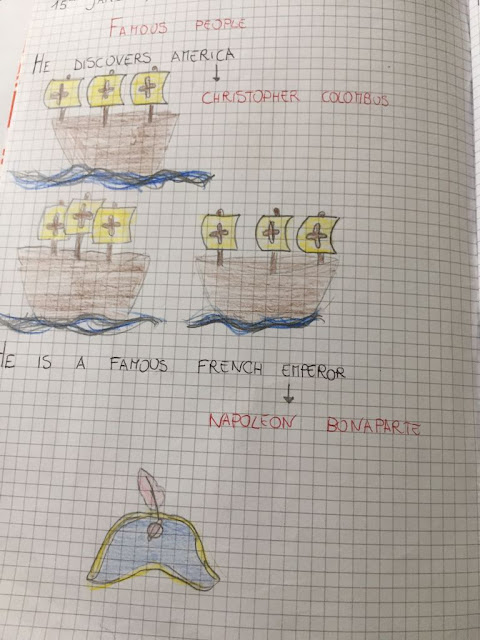 15TH
FAMOUS PEOPLE
HE DISCOVERS AMERICA
CHRISTOPHER COLOMBUS
HE IS A FAMOUS FRENCH EMPEROR
NAPOLEON BONAPARTE